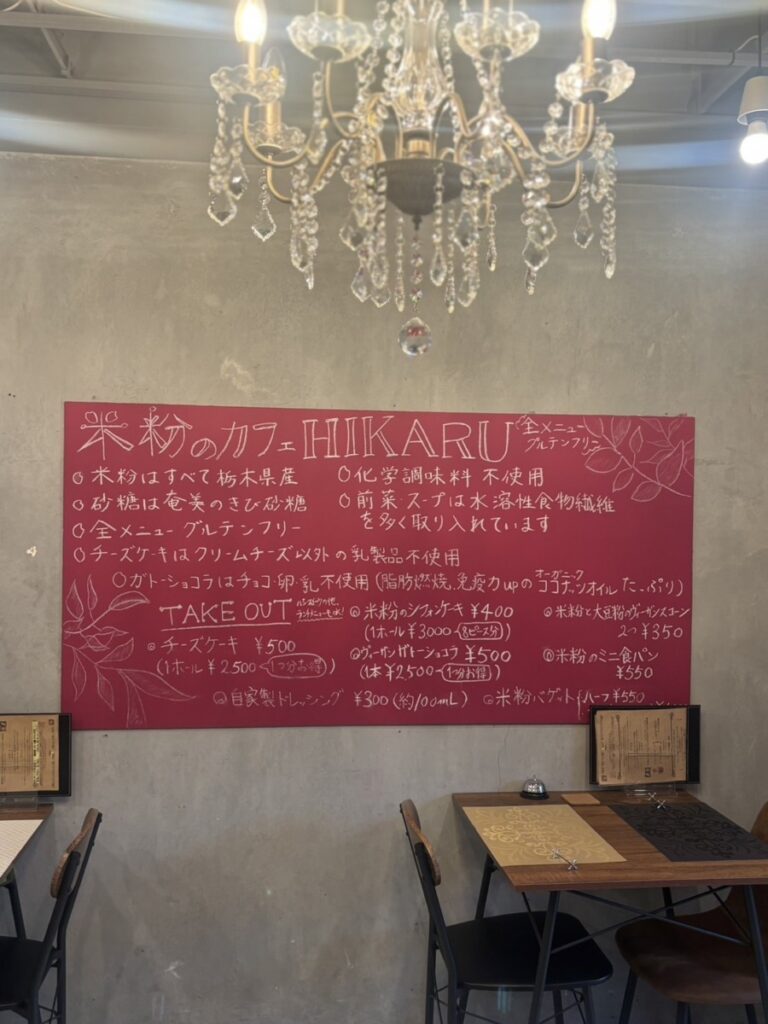 米粉のカフェHIKARU
全メニュー
グルテンフリー
○米粉はすべて栃木県産
○化学調味料 不使用
○砂糖は奄美のきび砂糖
○前菜・スープは水溶性食物繊維
を多く取り入れています
○全メニュー グルテンフリー
○チーズケーキはクリームチーズ以外の乳製品不使用
○ガトーショコラはチョコ・卵・乳不使用(脂肪燃焼、免疫力upの
オーガニック
ココナッツオイル たっぷり)
TAKE OUT
◎チーズケーキ ¥500
(1ホール¥2500 1つ分お得)
◎米粉のシフォンケーキ ¥400
(1ホール¥3000 8ピース分)
◎ヴィーガンガトーショコラ ¥500
(1本¥2500 1つ分お得)
◎米粉と大豆粉のヴィーガンスコーン
2つ¥350
◎米粉のミニ食パン
¥550
◎自家製ドレッシング ¥300(約100mL)
◎米粉バゲット ハーフ¥550